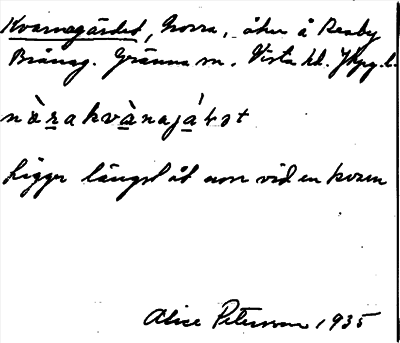 Kvarnegärdet, Norra, åker å Reaby
Brånag. Gränna sn. Vista hd. Jkpg. l.
nò̱rakvà̱najá̱ṭət
Ligger längst åt norr vid en kvarn
Alice Petersson 1935